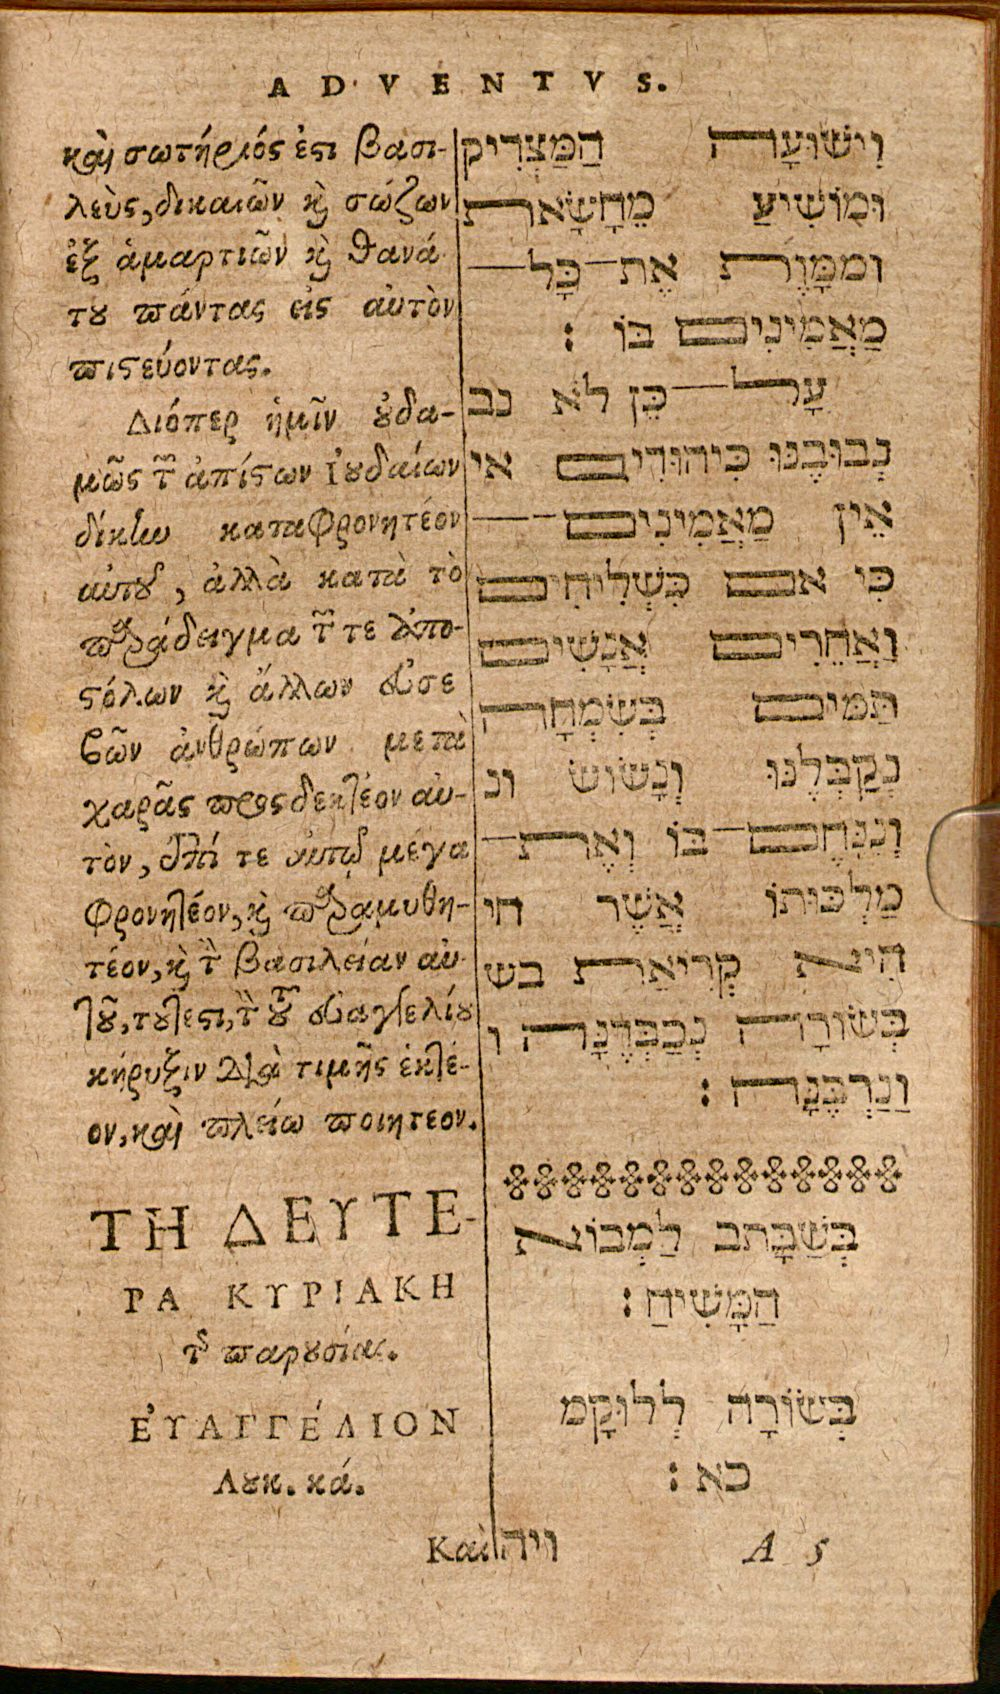 ADVENTVS.
καὶ σωτήριός ἐστι βασι-
λεὺς, δικαιῶν καὶ σώζων
ἐξ ἁμαρτιῶν καὶ θανά
του πάντας εἰς αὐτὸν
πιστεύοντας.
Διόπερ ἡμῖν οὐδα-
μῶς τῶν ἀπίστων Ιουδαίων
δίκην καταφρονητέον
αὐτοῦ, ἀλλὰ κατὰ τὸ
παράδειγμα τῶν τε ἀπο-
στόλων καὶ ἄλλων εὐσε
βῶν ἀνθρώπων μετὰ
χαρᾶς προσδεκτέον αὐ-
τὸν, ἐπί τε αὐτῷ μέγα
φρονητέον, καὶ παραμυθη-
τέον, καὶ τὴν βασιλείαν αὐ-
τοῦ, τουτέστι, τὴν τοῦ εὐαγγελίου
κήρυξιν διὰ τιμῆς ἑκτέ-
ον, καὶ πλείω ποιητεον.
ΤΗ ΔΕΥΤΕ-
ΡΑ ΚΥΡΙΑΚΗ
τῆς παρουσίας.
ἘΥΑΓΓΈΛΙΟΝ
Λουκ. κά.
Καὶ
וִישׁוּעָה הַמַּצְדִיק
וּמוֹשִׁיעַ מֵחָשָּׂאת
וממָּוֶת אֶת־כָּל־
מַאֲמִינִים בּוֹ :
עָל־כֵּן לֹא נב
נְבוּבֶנּוּ כִּיהוּדִים אי
אֵין מַאֲמִינִים־
כִּי אם כִּשְׁלִיחִים
וַאֲחֵרִים אֲנָשִׁים
תַּמִּים בְּשִׂמְחָה
נְקַבְּלֶנּוּ וְנָשׂוּשׂ ונ
וְנִנְּחֶם־בּוֹ וְאֶת־
מַלְכּוּתוֹ אֲשֶׁר הי
הִיא קְרִיאַת בש
בְּשׂוֹרָה נְכַבְּדֶנָּה ו
וַנַרְבֶּנָּה :
בְּשַׁבָּתב לַמְבוֹא
הַמָּשִׁיחַ :
בְּשׂוֹרָה לְלוּקָס
כא :
ויה
A 5